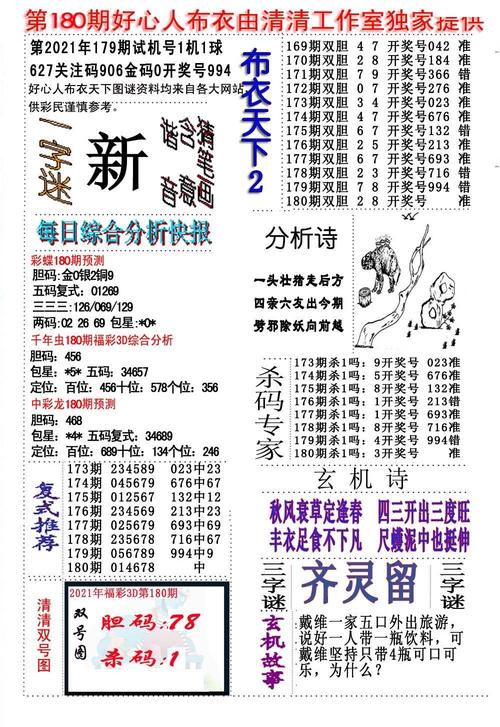 第180期好心人布衣由清清工作室独家提供
第2021年179期试机号1机1球
627关注码906金码0开奖号994
好心人布衣天下图谜资料均来自各大网站,
供彩民谨慎参考。
一字迷
新
猜笔画
含意
谐音
布衣天下2
169期双胆 4 7 开奖号042 准
170期双胆 2 8 开奖号184 准
171期双胆 7 9 开奖号366 错
172期双胆 0 7 开奖号730 准
173期双胆 0 3 开奖号023 准
174期双胆 4 7 开奖号676 准
175期双胆 2 6 开奖号132 准
176期双胆 2 5 开奖号213 准
177期双胆 6 7 开奖号693 准
178期双胆 2 3 开奖号716 错
179期双胆 7 8 开奖号994 错
180期双胆 2 8 开奖号
每日综合分析快报
彩蝶180期预测
胆码:金0银2铜9
五码复式:01269
三三三:126/069/129
两码:02 26 69 包星:*0*
千年虫180期福彩3D综合分析
胆码:456
包星:*5* 五码:34657
定位:百位:456十位:578个位:356
中彩龙180期预测
胆码:468
包星:*4* 五码复式:34689
定位:百位:689十位:134个位:246
分析诗
一头壮猪走后方
四亲六友出今期
劈邪除妖向前越
杀码专家
173期杀1吗:9开奖号 023准
174期杀1吗:8开奖号 676准
175期杀1吗:5开奖号 132准
176期杀1吗:1开奖号 213错
177期杀1吗:7开奖号 693准
178期杀1吗:2开奖号 716准
179期杀1吗:9开奖号 994错
180期杀1吗:3开奖号
复式推荐
173期 234589 023中23
174期 045679 676中67
175期 012567 132中12
176期 012567 213中12
177期 025679 693中69
178期 025679 716中67
179期 056789 994中9
180期 014678
玄机诗
秋风衰草定逢春 四三开出三度旺
丰衣足食不下凡 尺蠖泥中也挺伸
清清双号图
2021年福彩3D第180期
双号图
胆码:78
杀码:1
三字谜
齐灵留
三字谜
玄机故事
戴维一家五口外出旅游,
说好一人带一瓶饮料,可
戴维坚持只带4瓶可口可
乐,为什么?